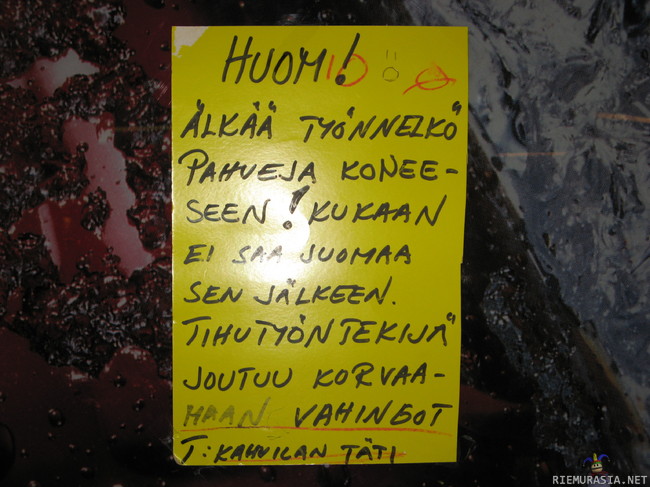 HUOM!
ÄLKÄÄ TYÖNNELKÖ
PAHVEJA KONEE-
SEEN! KUKAAN
EI SAA JUOMAA
SEN JÄLKEEN.
TIHUTYÖNTEKIJÄ
JOUTUU KORVAA-
MAAN VAHINGOT
T: KAHVILAN TÄTI
RIEMURASIA.NET